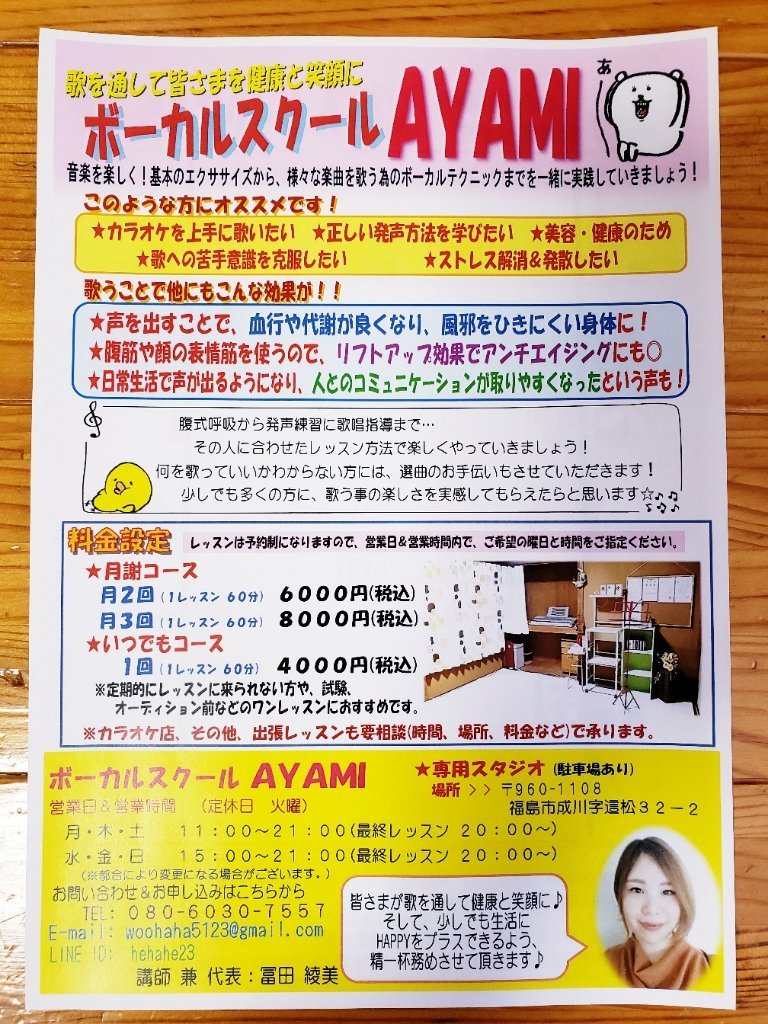 歌を通して皆さまを健康と笑顔に
ボーカルスクール AYAMI
あ
音楽を楽しく！基本のエクササイズから、様々な楽曲を歌う為のボーカルテクニックまでを一緒に実践していきましょう！
このような方にオススメです！
★カラオケを上手に歌いたい ★正しい発声方法を学びたい ★美容・健康のため
★歌への苦手意識を克服したい ★ストレス解消＆発散したい
歌うことで他にもこんな効果が！！
★声を出すことで、血行や代謝が良くなり、風邪をひきにくい身体に！
★腹筋や顔の表情筋を使うので、リフトアップ効果でアンチエイジングにも○
★日常生活で声が出るようになり、人とのコミュニケーションが取りやすくなったという声も！
腹式呼吸から発声練習に歌唱指導まで…
その人に合わせたレッスン方法で楽しくやっていきましょう！
何を歌っていいかわからない方には、選曲のお手伝いもさせていただきます！
少しでも多くの方に、歌う事の楽しさを実感してもらえたらと思います☆♪♪
料金設定 レッスンは予約制になりますので、営業日＆営業時間内で、ご希望の曜日と時間をご指定ください。
★月謝コース
月2回（1レッスン 60分） 6000円(税込)
月3回（1レッスン 60分） 8000円(税込)
★いつでもコース
1回（1レッスン 60分） 4000円(税込)
※定期的にレッスンに来られない方や、試験、
オーディション前などのワンレッスンにおすすめです。
※カラオケ店、その他、出張レッスンも要相談(時間、場所、料金など)で承ります。
ボーカルスクール AYAMI
営業日＆営業時間 （定休日 火曜）
月・木・土 11：00～21：00(最終レッスン 20：00～)
水・金・日 15：00～21：00(最終レッスン 20：00～)
(※都合により変更になる場合がございます。)
お問い合わせ＆お申し込みはこちらから
TEL: 080-6030-7557
E-mail: woohaha5123@gmail.com
LINE ID: hehahe23
講師 兼 代表：冨田 綾美
★専用スタジオ（駐車場あり）
場所 >> 〒960-1108
福島市成川字這松32－2
皆さまが歌を通して健康と笑顔に♪
そして、少しでも生活に
HAPPYをプラスできるよう、
精一杯務めさせて頂きます♪